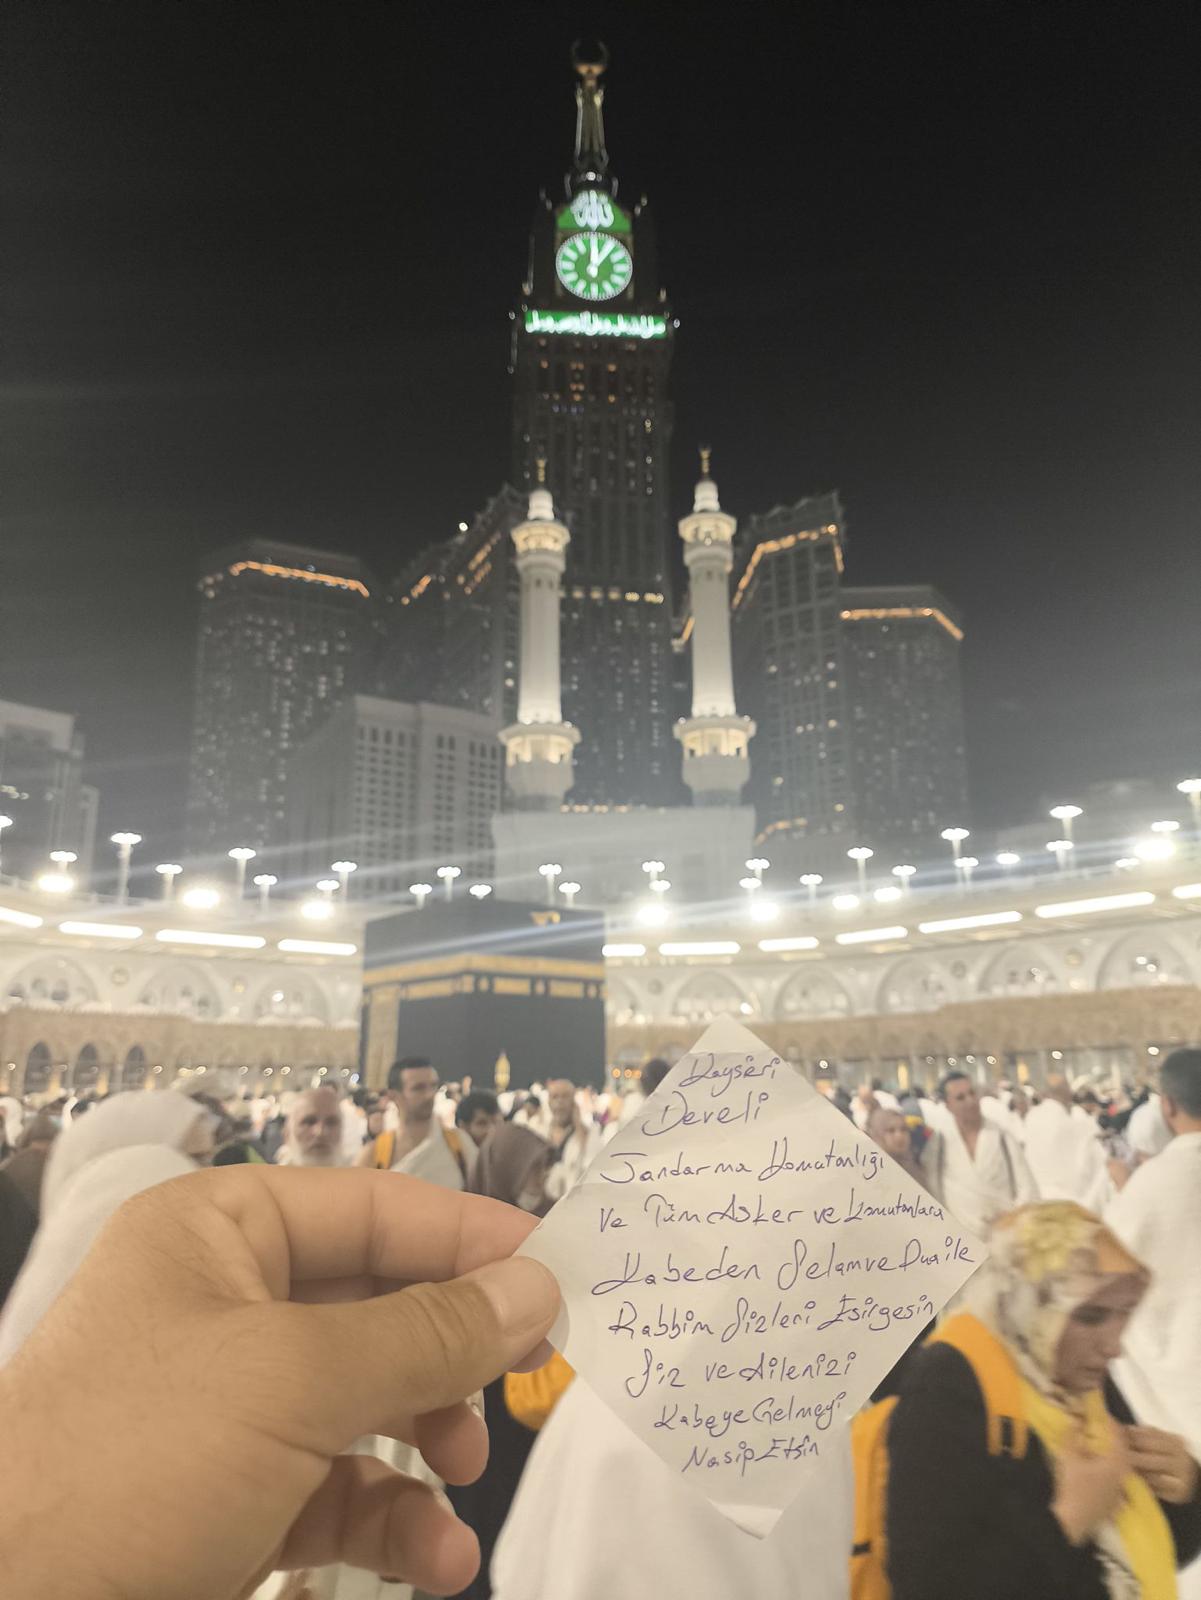 الله
Kayseri
Develi
Jandarma Komutanlığı
Ve Tüm Asker ve Komutanlara
Kabeden Selam ve Dua ile
Rabbim Sizleri Esirgesin
Siz ve Ailenizi
Kabeye Gelmeyi
Nasip Etsin